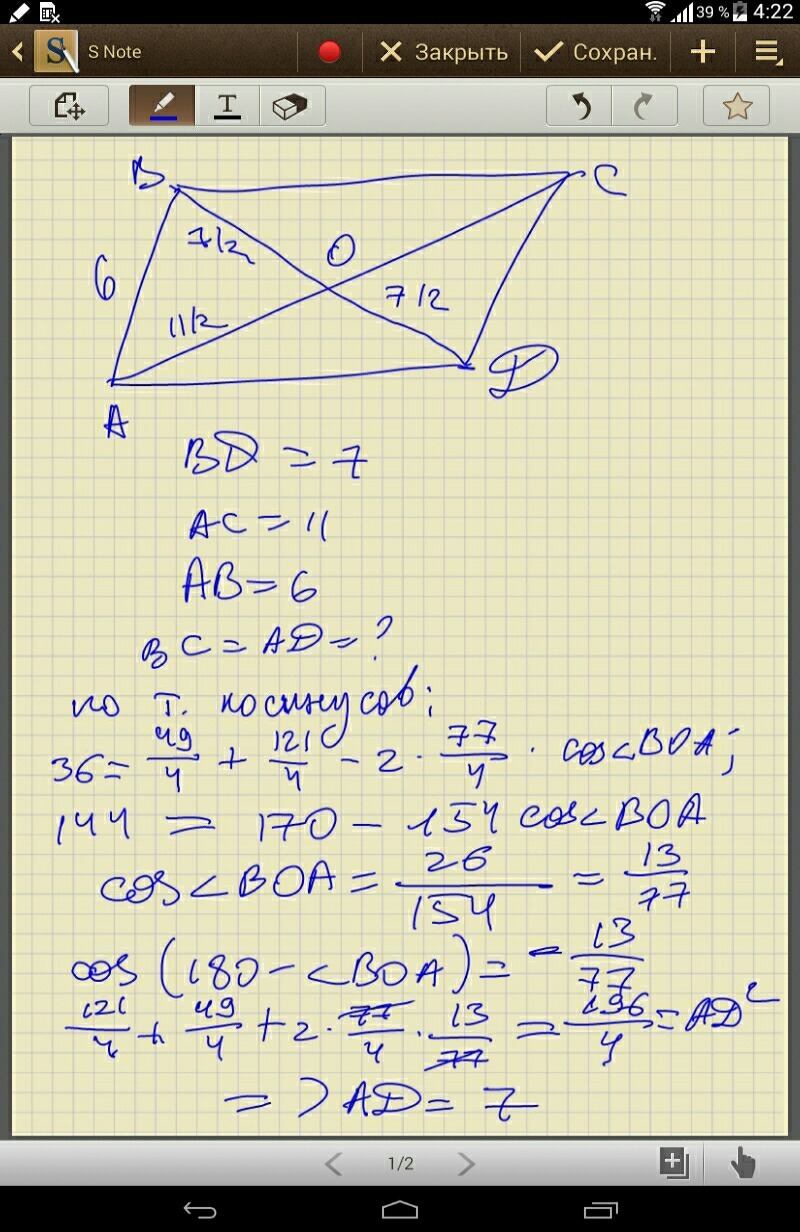 39 % 4:22
S Note Закрыть Сохран. +
T
B C
7/2 O
6 7/2
11/2
A D
BD = 7
AC = 11
AB = 6
BC = AD = ?
по т. косинусов:
36 = 49/4 + 121/4 - 2 · 77/4 · cos<BOA;
144 = 170 - 154 cos<BOA
cos<BOA = 26/154 = 13/77
cos(180 - <BOA) = -13/77
121/4 + 49/4 + 2 · 77/4 · 13/77 = 196/4 = AD²
=> AD = 7
1/2